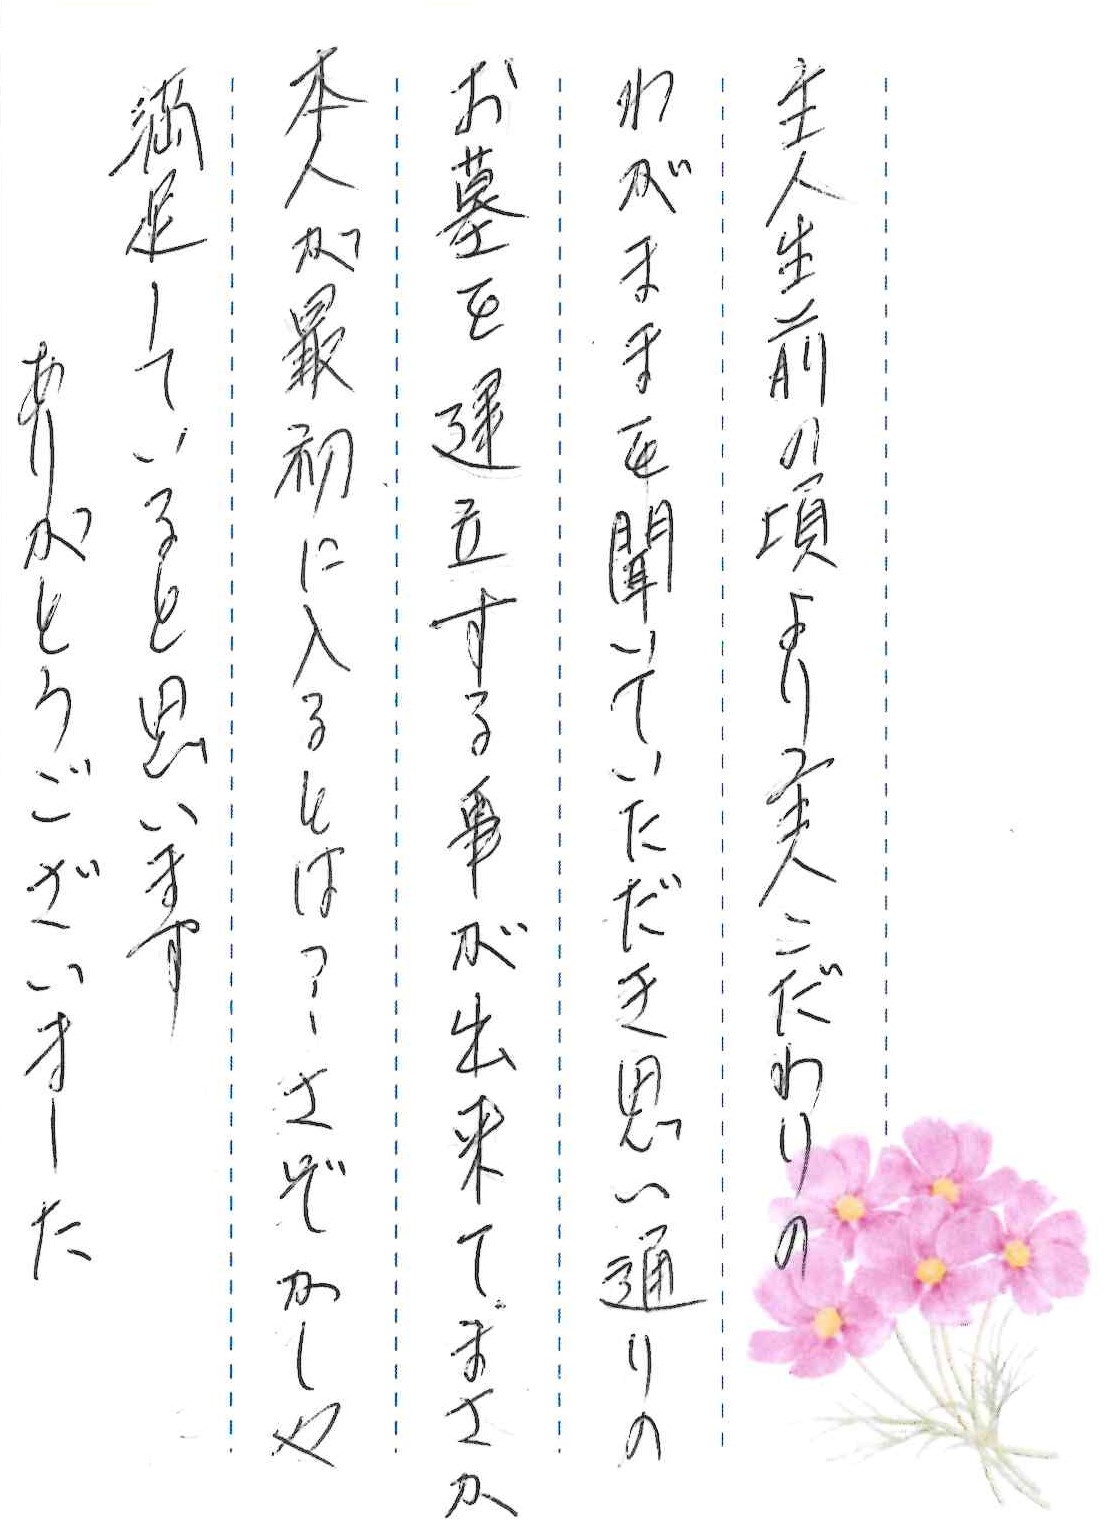 主人生前の頃より主人こだわりの
わがままを聞いていただき思い通りの
お墓を建立する事が出来てまさか
本人が最初に入るとは？！さぞかしや
満足していると思います
ありがとうございました